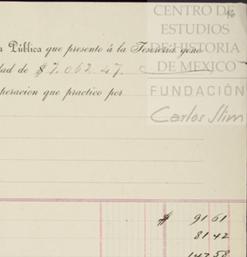 CENTRO DE
ESTUDIOS
DE HISTORIA
DE MEXICO
FUNDACIÓN
Carlos Slim
Pública que presento á la Tesorería
dad de $7.062.47.
peracion que practico por
$ 91 61
81 42